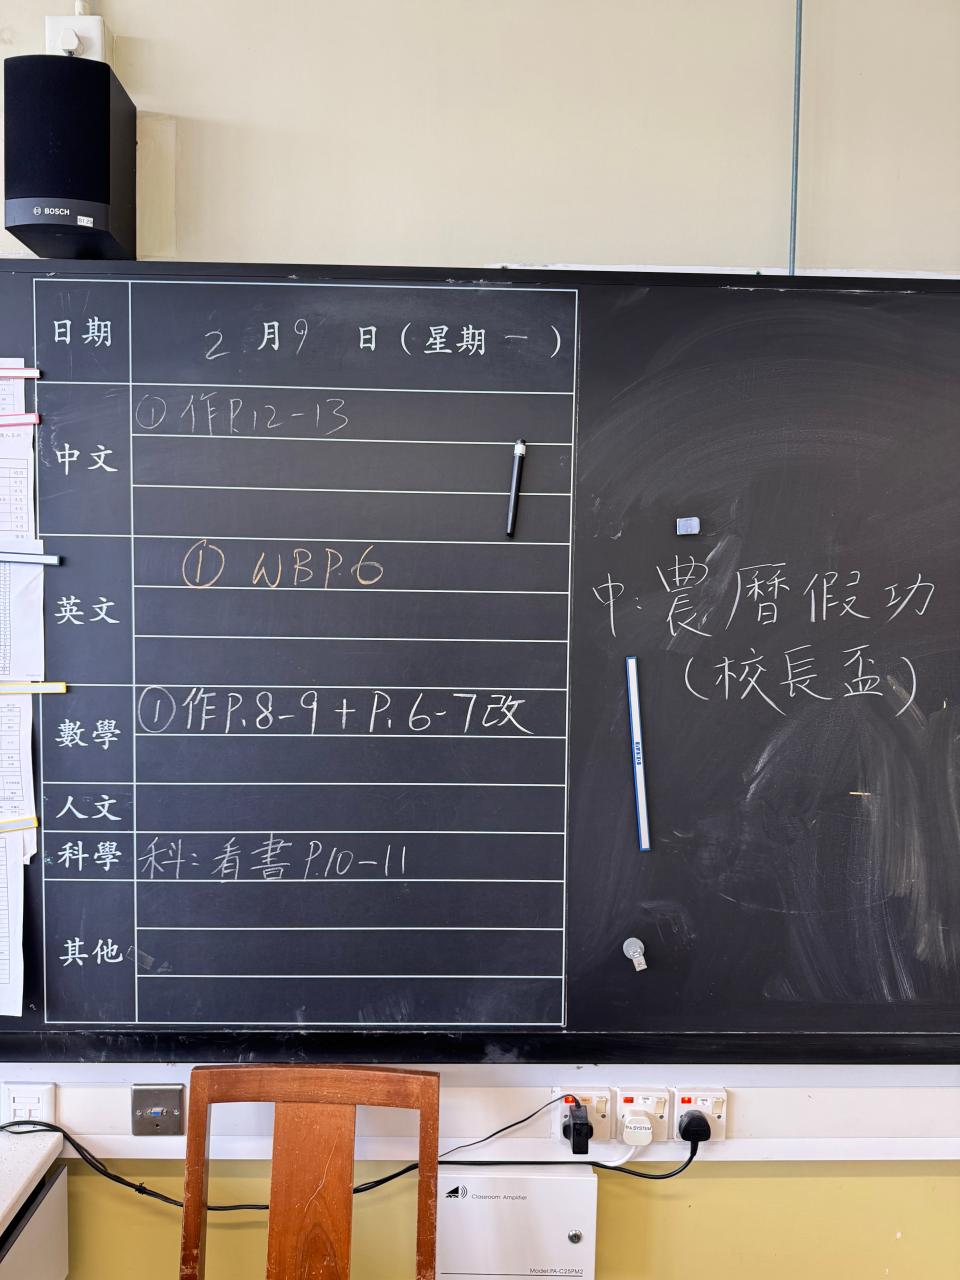 BOSCH
日期 2月9日(星期一)
中文 ①作P.12-13
英文 ① WBP.6
數學 ①作P.8-9+P.6-7改
人文
科學 科:看書P.10-11
其他
中:農曆假功
(校長盃)
PA SYSTEM
Classroom Amplifier
Model:PA-C25PM2